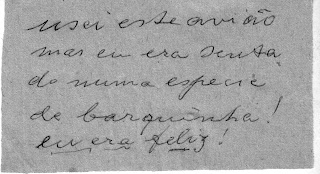 usei este avião
mas eu era senta
do numa especie
de barquinha!
eu era feliz!